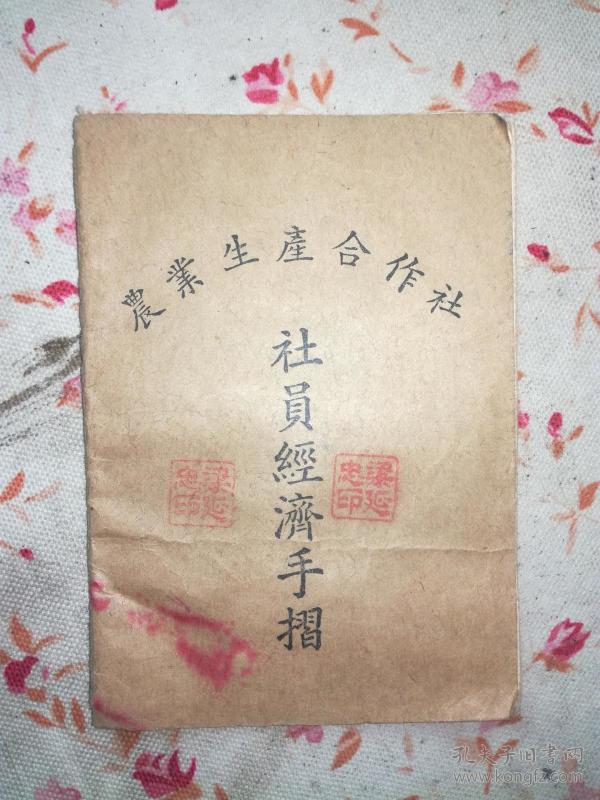 農業生產合作社
社員經濟手摺
梁延忠印
梁延忠印
孔夫子旧书网
www.kongfz.com